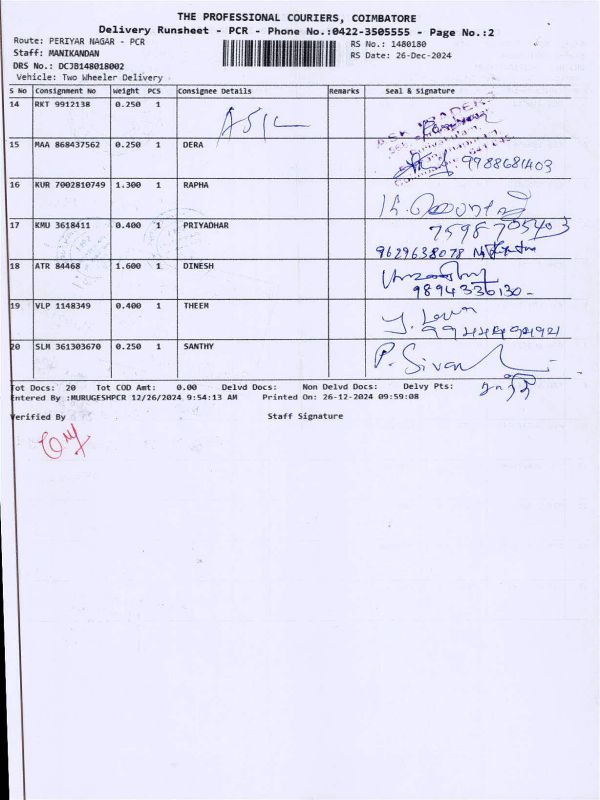 THE PROFESSIONAL COURIERS, COIMBATORE
Delivery Runsheet - PCR - Phone No.:0422-3505555 - Page No.:2
Route: PERIYAR NAGAR - PCR RS No.: 1480180
Staff: MANIKANDAN RS Date: 26-Dec-2024
DRS No.: DCJB148018002
Vehicle: Two Wheeler Delivery
S No Consignment No Weight PCS Consignee Details Remarks Seal & Signature
14 RKT 9912138 0.250 1 ASK
15 MAA 868437562 0.250 1 DERA 9788681403
16 KUR 7002810749 1.300 1 RAPHA
17 KMU 3618411 0.400 1 PRIYADHAR 7598705403
9629638078
18 ATR 84468 1.600 1 DINESH
9894336130
19 VLP 1148349 0.400 1 THEEM
20 SLM 361303670 0.250 1 SANTHY P. Sivan
Tot Docs: 20 Tot COD Amt: 0.00 Delvd Docs: Non Delvd Docs: Delvy Pts:
Entered By :MURUGESHPCR 12/26/2024 9:54:13 AM Printed On: 26-12-2024 09:59:08
Verified By Staff Signature